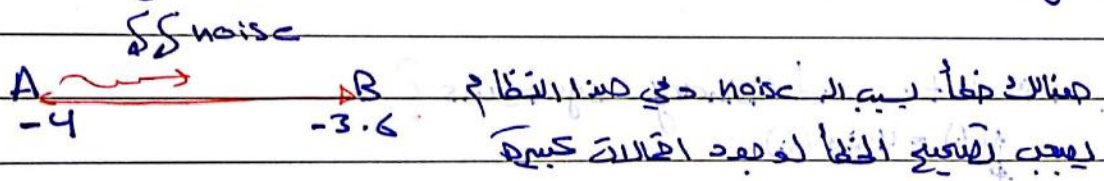 noise
A B هنالك خطأ بسبب الـ noise وفي هذا النظام
-4 -3.6 يصعب تصحيح الخطأ لوجود احتمالات كبيرة